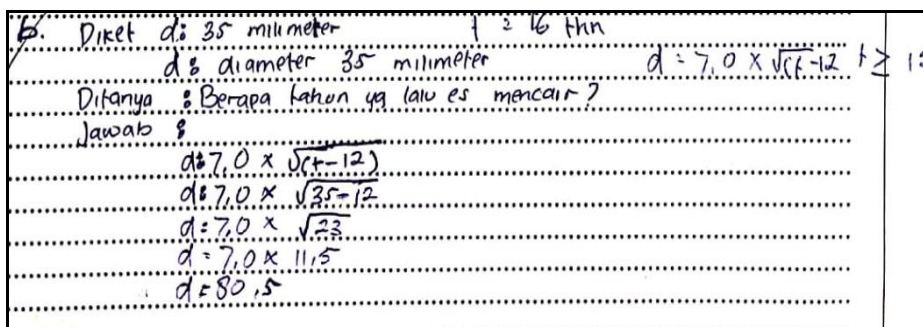 b. Diket d: 35 milimeter t = 16 thn
d : diameter 35 milimeter d = 7,0 × √(t-12 t ≥ 12
Ditanya : Berapa tahun yg lalu es mencair?
Jawab :
d: 7,0 × √(t-12)
d: 7,0 × √35-12
d = 7,0 × √23
d = 7,0 × 11,5
d = 80,5